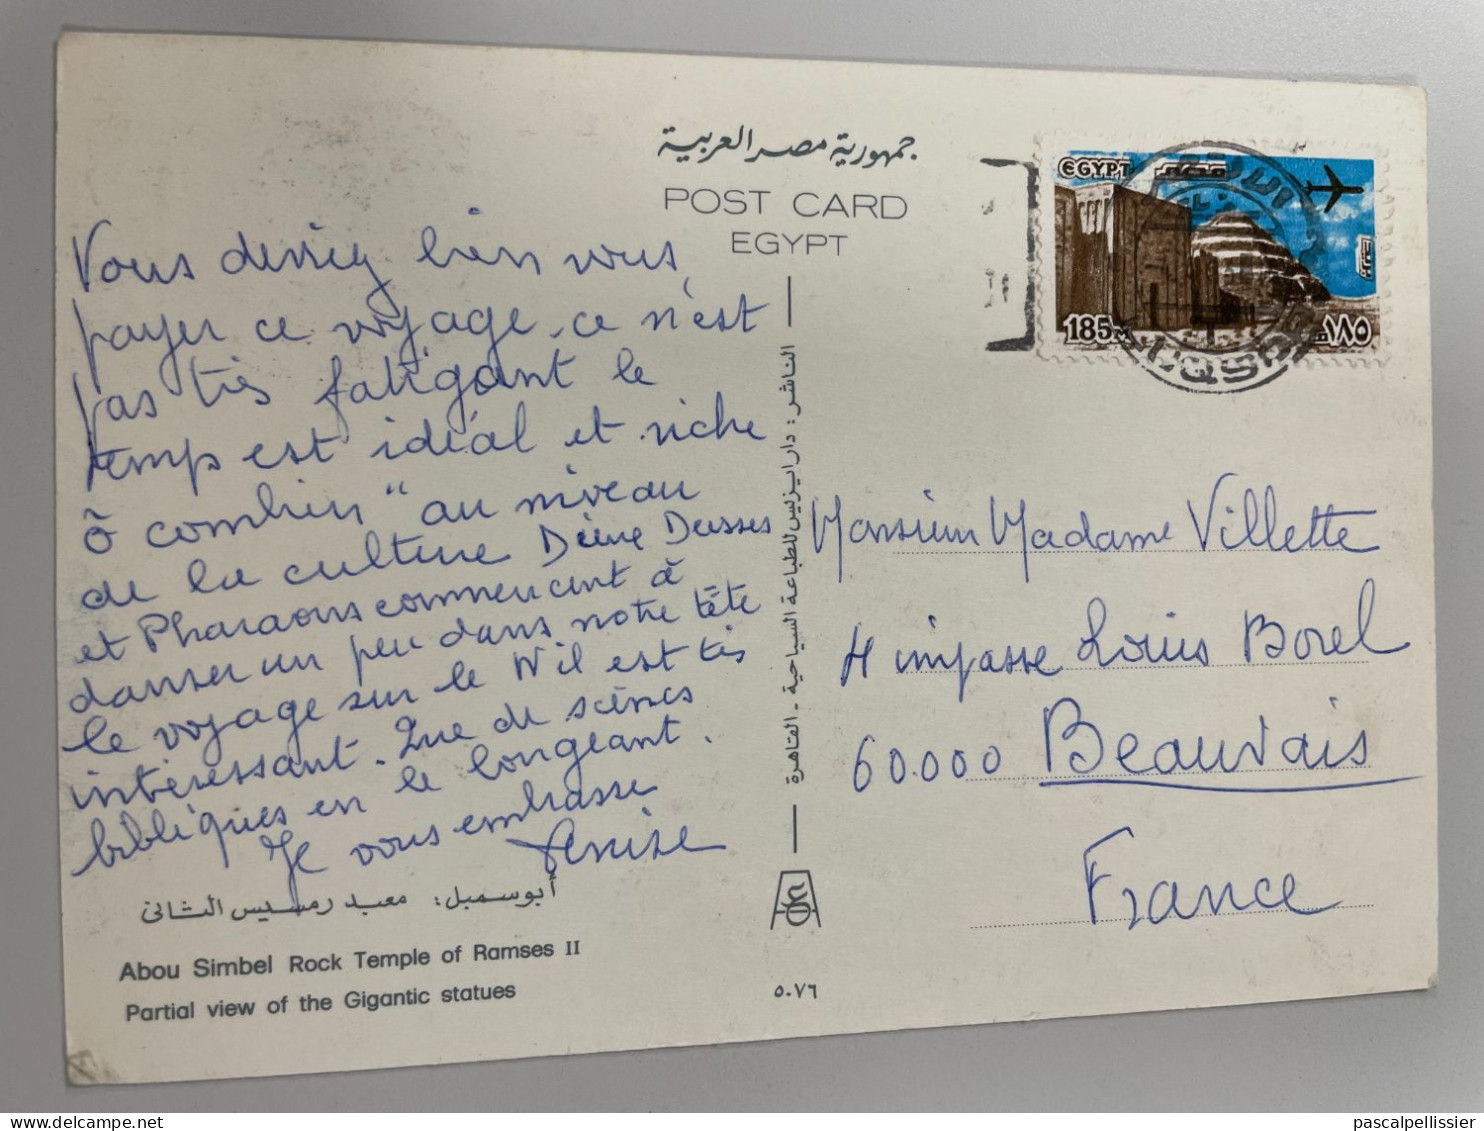 جمهورية مصر العربية
POST CARD
EGYPT
Vous devriez bien vous
payer ce voyage. ce n'est
pas très fatigant le
temps est idéal et riche
ô combien" au niveau
de la culture
et Pharaons commencent à
danser un peu dans notre tête
le voyage sur le Nil est très
intéressant. Que de scènes
bibliques en le longeant.
Je vous embrasse
Denise
أبو سمبل: معبد رمسيس الثانى
Abou Simbel Rock Temple of Ramses II
Partial view of the Gigantic statues
الناشر: دار ايزيس للطباعة السياحية - القاهرة
٥٠٧٦
EGYPT مصر
185M ١٨٥م
بريد جوى
LUQSOR
Monsieur Madame Villette
4 impasse Louis Borel
60.000 Beauvais
France
pascalpellissier